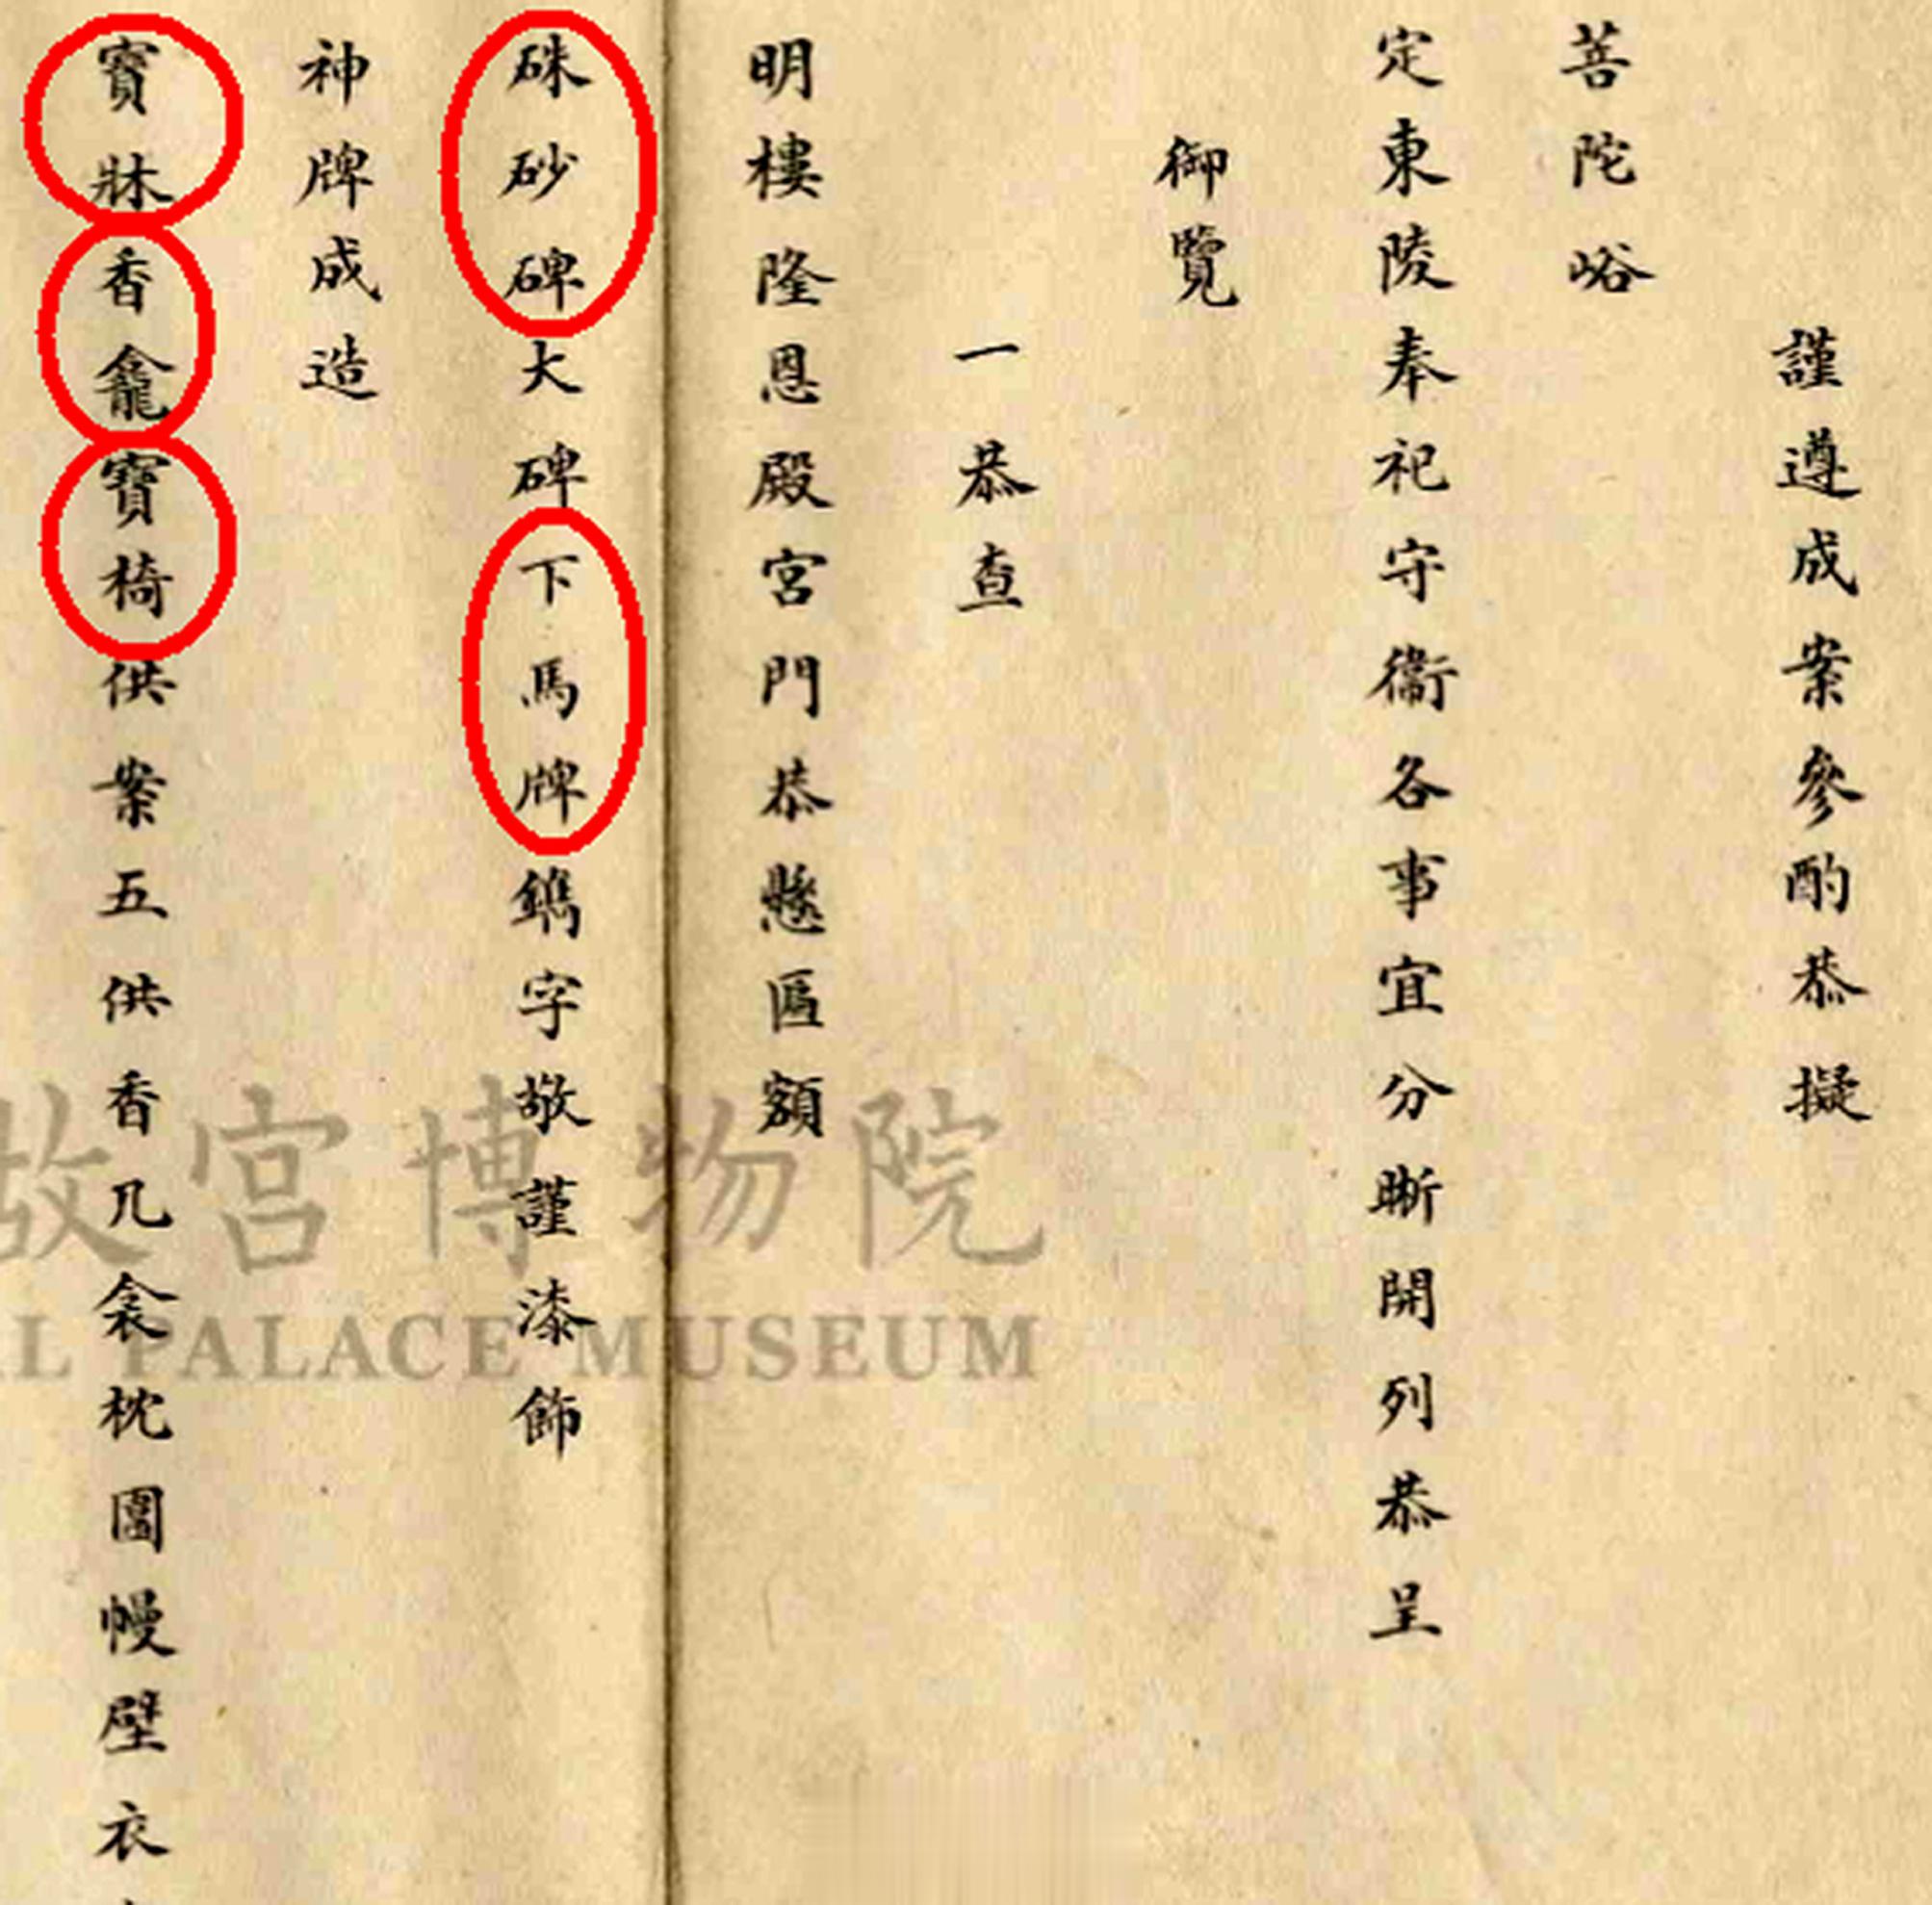 謹遵成案參酌恭擬
菩陀峪
定東陵奉祀守衞各事宜分晰開列恭呈
御覽
一恭查
明樓隆恩殿宮門恭懸匾額
硃砂碑大碑下馬牌鐫字敬謹漆飾
神牌成造
寶牀香龕寶椅供案五供香几衾枕圍幔壁衣
故宮博物院
PALACE MUSEUM